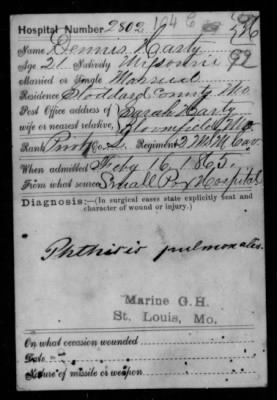 Hospital Number 2802
Name Dennis Harty
Age 21 Nativity Missouri 92
Married or Single Married
Residence Stoddard County Mo
Post Office address of Sarah Harty
wife or nearest relative, Bloomfield Mo
Rank Co. L Regiment 2 M.M. Cav.
When admitted Feby 16, 1865.
From what source Small Pox Hospital
Diagnosis:—(In surgical cases state explicitly seat and
character of wound or injury.)
Phthisis pulmonalis.
Marine G.H.
St. Louis, Mo.
On what occasion wounded
Date
Nature of missile or weapon